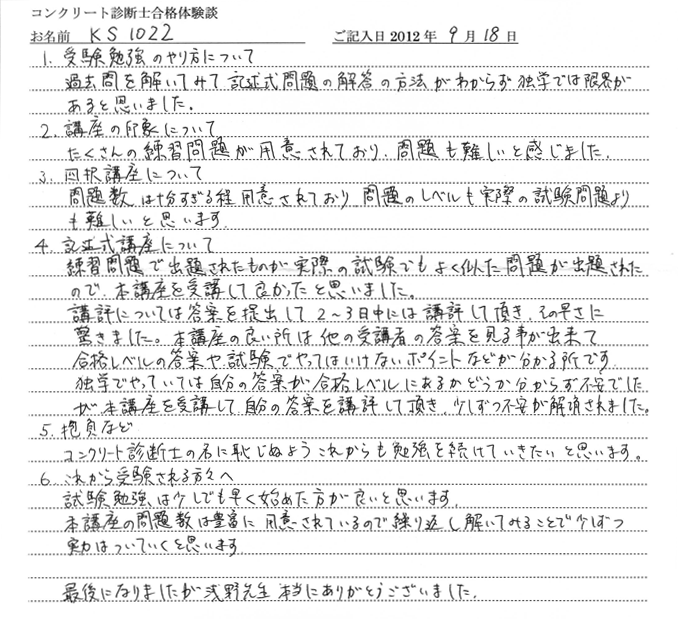 コンクリート診断士合格体験談
お名前 KS1022 ご記入日 2012年 9月 18日
1. 受験勉強のやり方について
過去問を解いてみて記述式問題の解答の方法がわからず独学では限界が
あると思いました.
2. 講座の印象について
たくさんの練習問題が用意されており. 問題も難しいと感じました.
3. 四択講座について
問題数は十分すぎる程用意されており 問題のレベルも実際の試験問題より
も難しいと思います.
4. 記述式講座について
練習問題で出題されたものが実際の試験でもよく似た問題が出題された
ので. 本講座を受講して良かったと思いました。
講評については答案を提出して2〜3日中には講評して頂き. その早さに
驚きました。本講座の良い所は他の受講者の答案を見る事が出来て
合格レベルの答案や試験でやってはいけないポイントなどが分かる所です
独学でやっていては自分の答案が合格レベルにあるかどうか分からず不安でした
が 本講座を受講して. 自分の答案を講評して頂き. 少しずつ不安が解消されました。
5. 抱負など
コンクリート診断士の名に恥じぬようこれからも勉強を続けていきたいと思います。
6. これから受験される方々へ
試験勉強は少しでも早く始めた方が良いと思います.
本講座の問題数は豊富に用意されているので繰り返し解いてみることで少しずつ
実力はついていくと思います
最後になりましたが浅野先生 本当にありがとうございました.